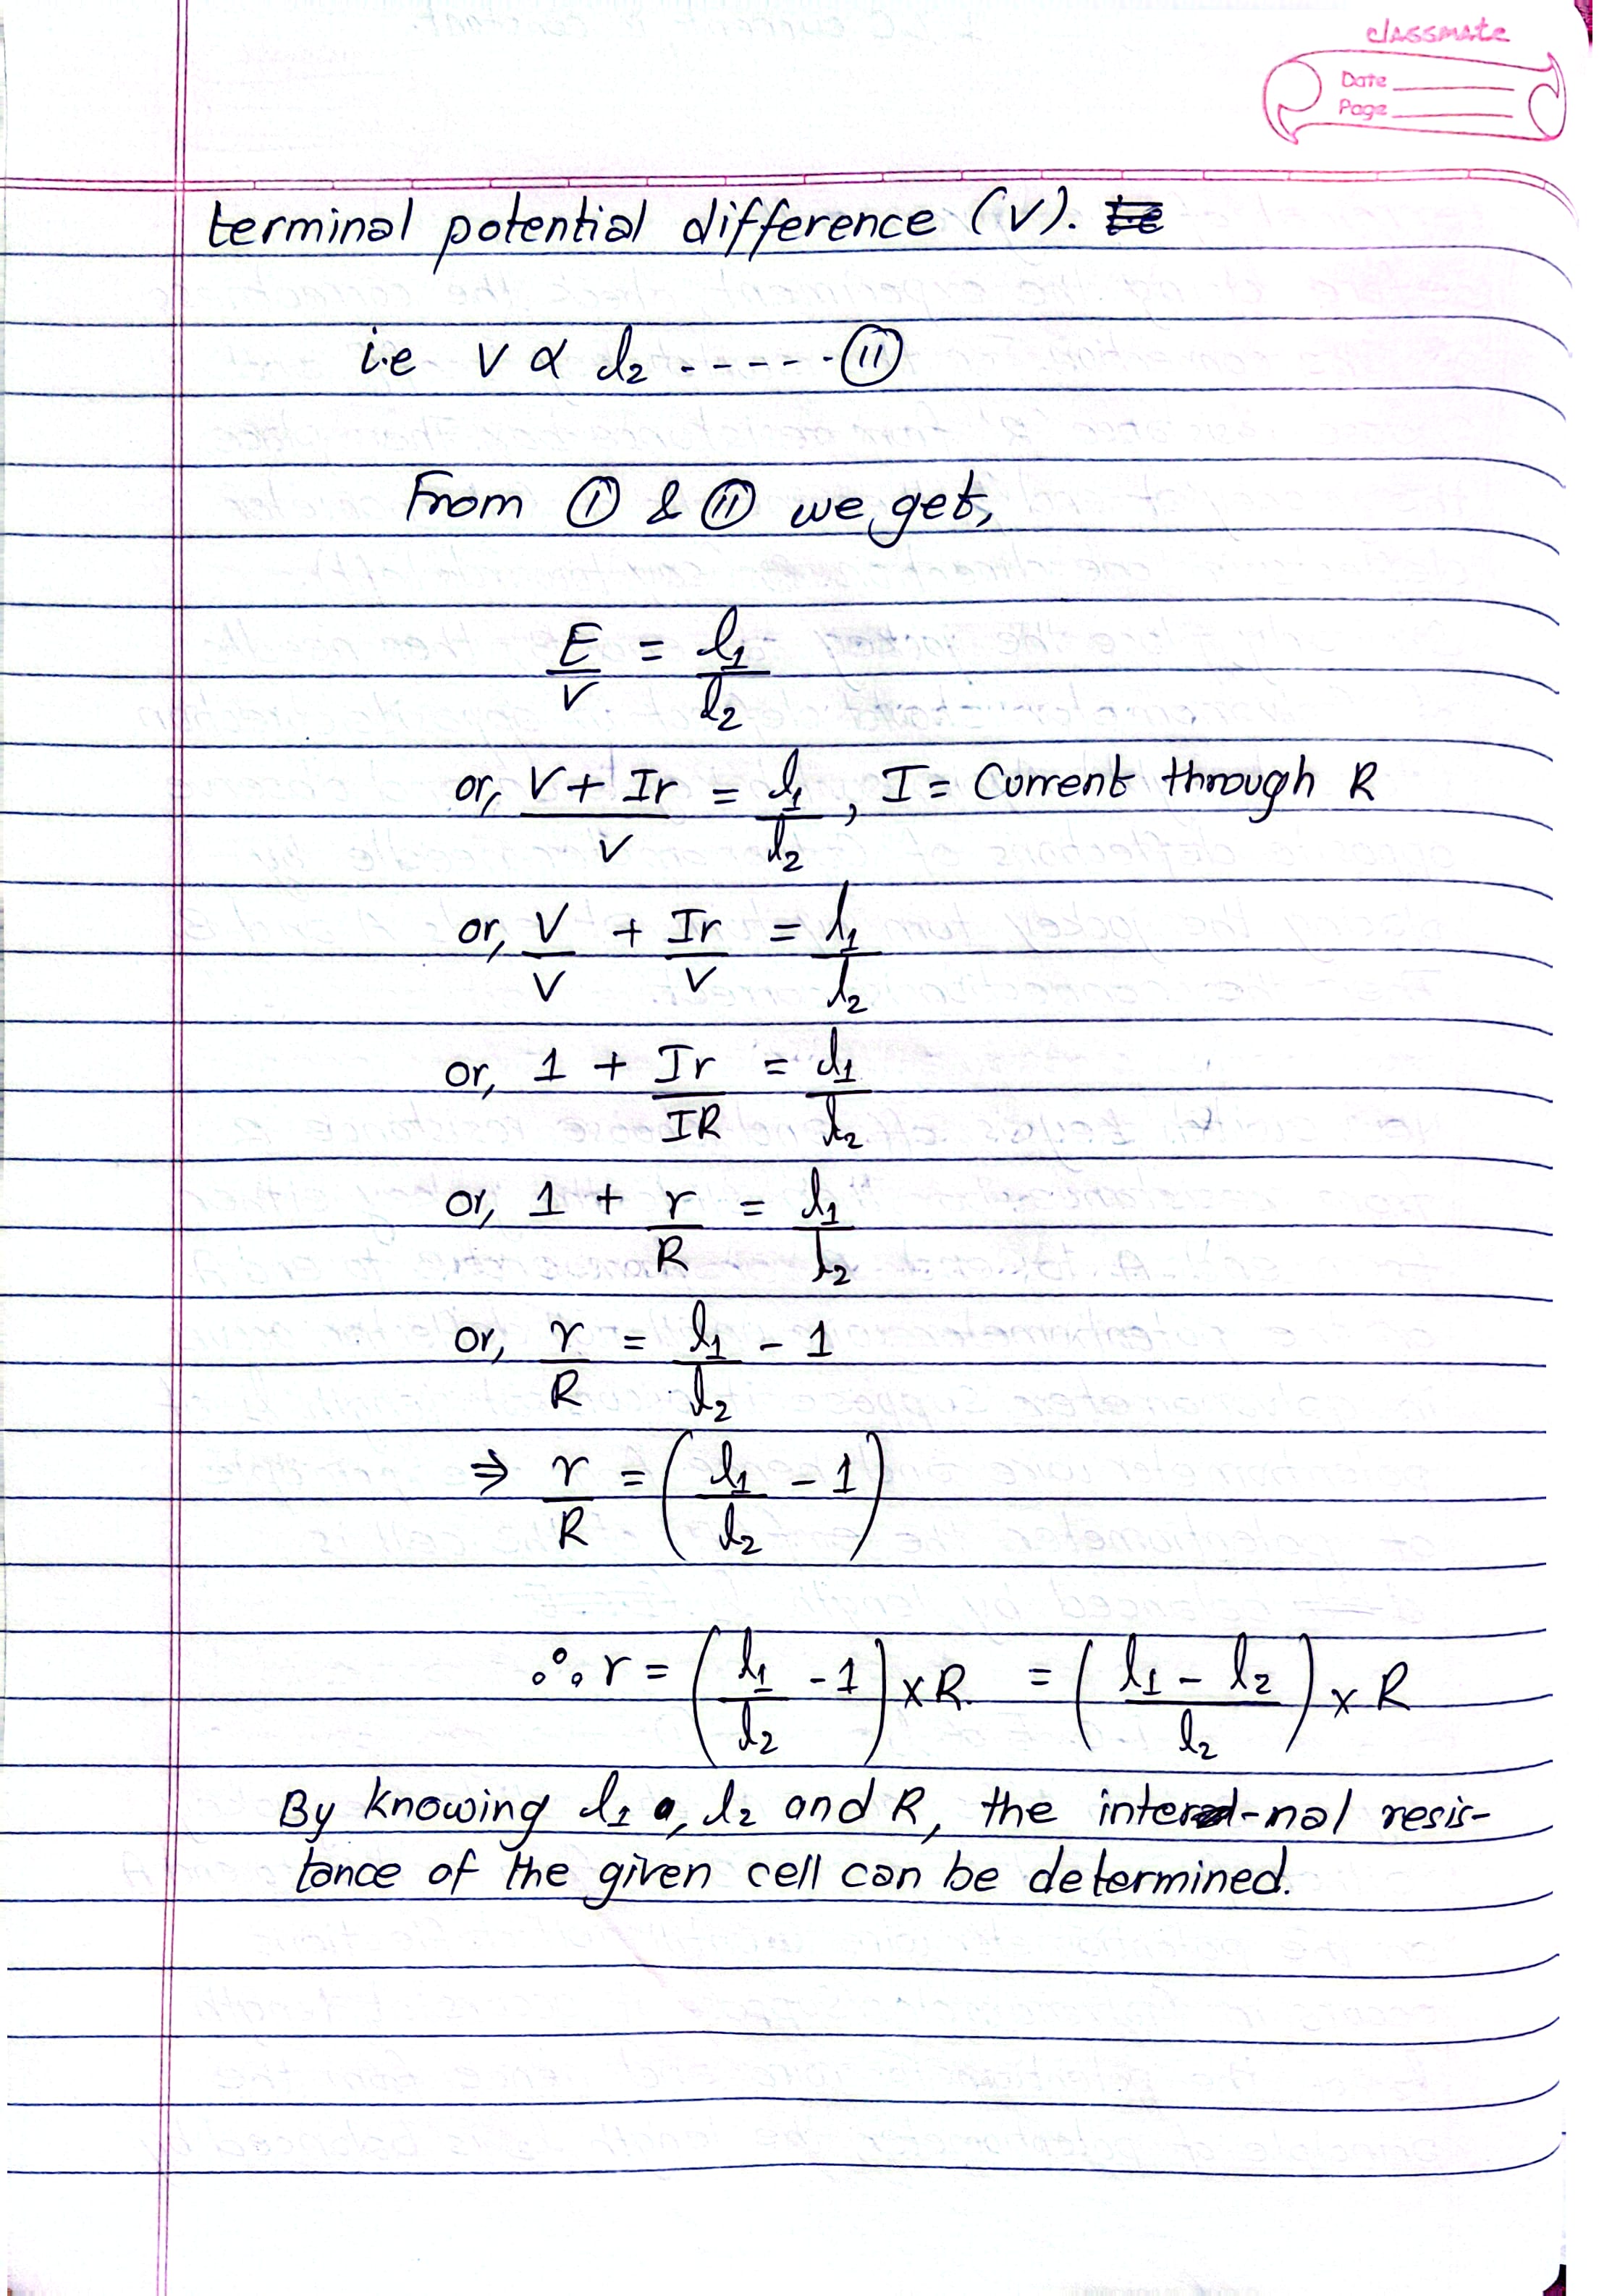 classmate
Date
Page
terminal potential difference (V).
i.e V ∝ l₂ ------ (II)
From (I) & (II) we get,
E/V = l₁/l₂
or, (V + Ir)/V = l₁/l₂, I = Current through R
or, V/V + Ir/V = l₁/l₂
or, 1 + Ir/IR = l₁/l₂
or, 1 + r/R = l₁/l₂
or, r/R = l₁/l₂ - 1
⇒ r/R = (l₁/l₂ - 1)
∴ r = (l₁/l₂ - 1) × R = ((l₁ - l₂)/l₂) × R
By knowing l₁, l₂ and R, the inter-nal resis-
tance of the given cell can be determined.